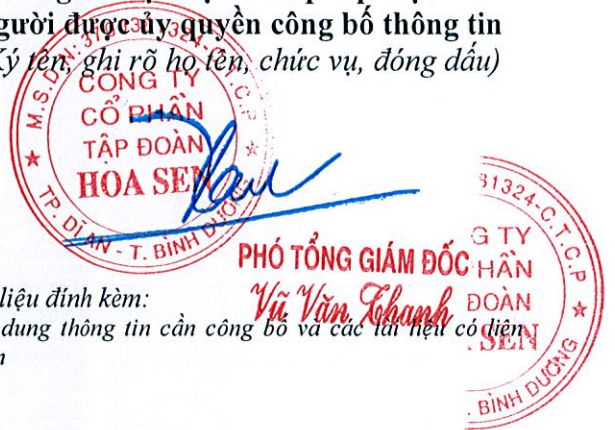 gười được ủy quyền công bố thông tin
Ký tên, ghi rõ họ tên, chức vụ, đóng dấu)
CÔNG TY
CỔ PHẦN
TẬP ĐOÀN
HOA SEN
M.S.D.N: C.T.C.P
TP. DĨ AN - T. BÌNH DƯƠNG
PHÓ TỔNG GIÁM ĐỐC
Vũ Văn Thanh
31324-C.T.C.P
G TY
HẦN
ĐOÀN
SEN
. BÌNH DƯƠNG
liệu đính kèm:
dung thông tin cần công bố và các tài liệu có liên
n